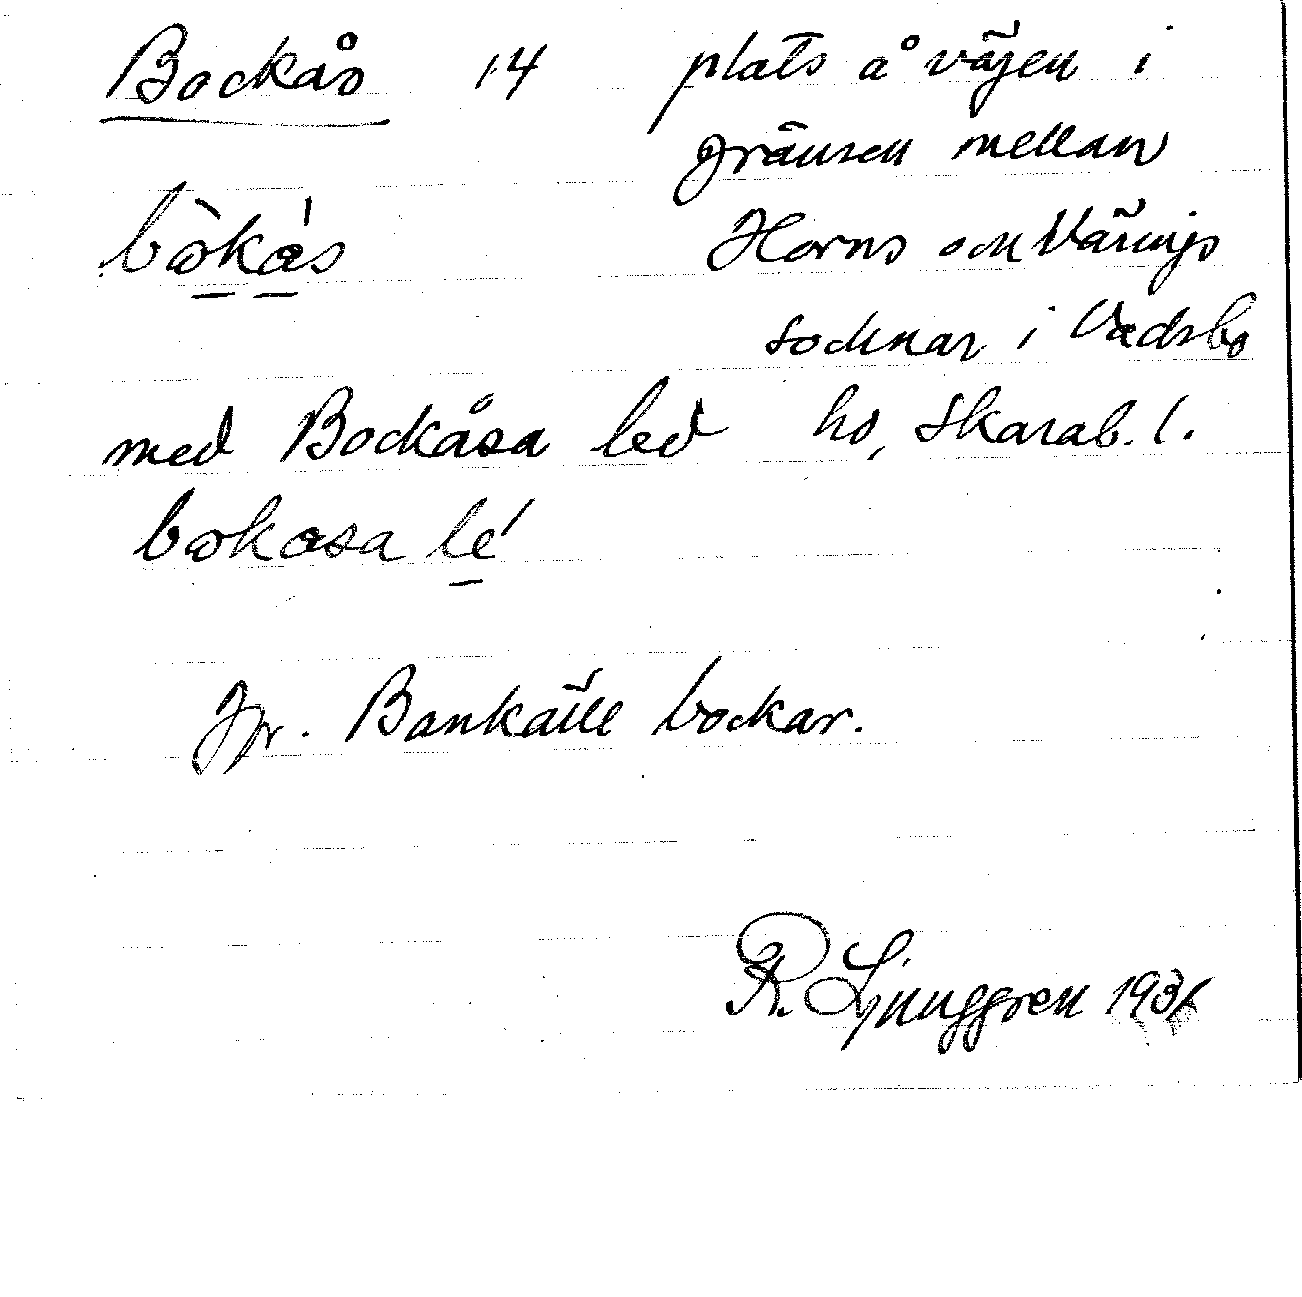 Bockås 14 plats å vägen i
gränsen mellan
bɷ̀kås Horns och Värings
socknar i Vadsbo
med Bockåsa led hd, Skarab. l.
bɷkɑsa lé
Jfr. Bankälle bockar.
R. Ljunggren